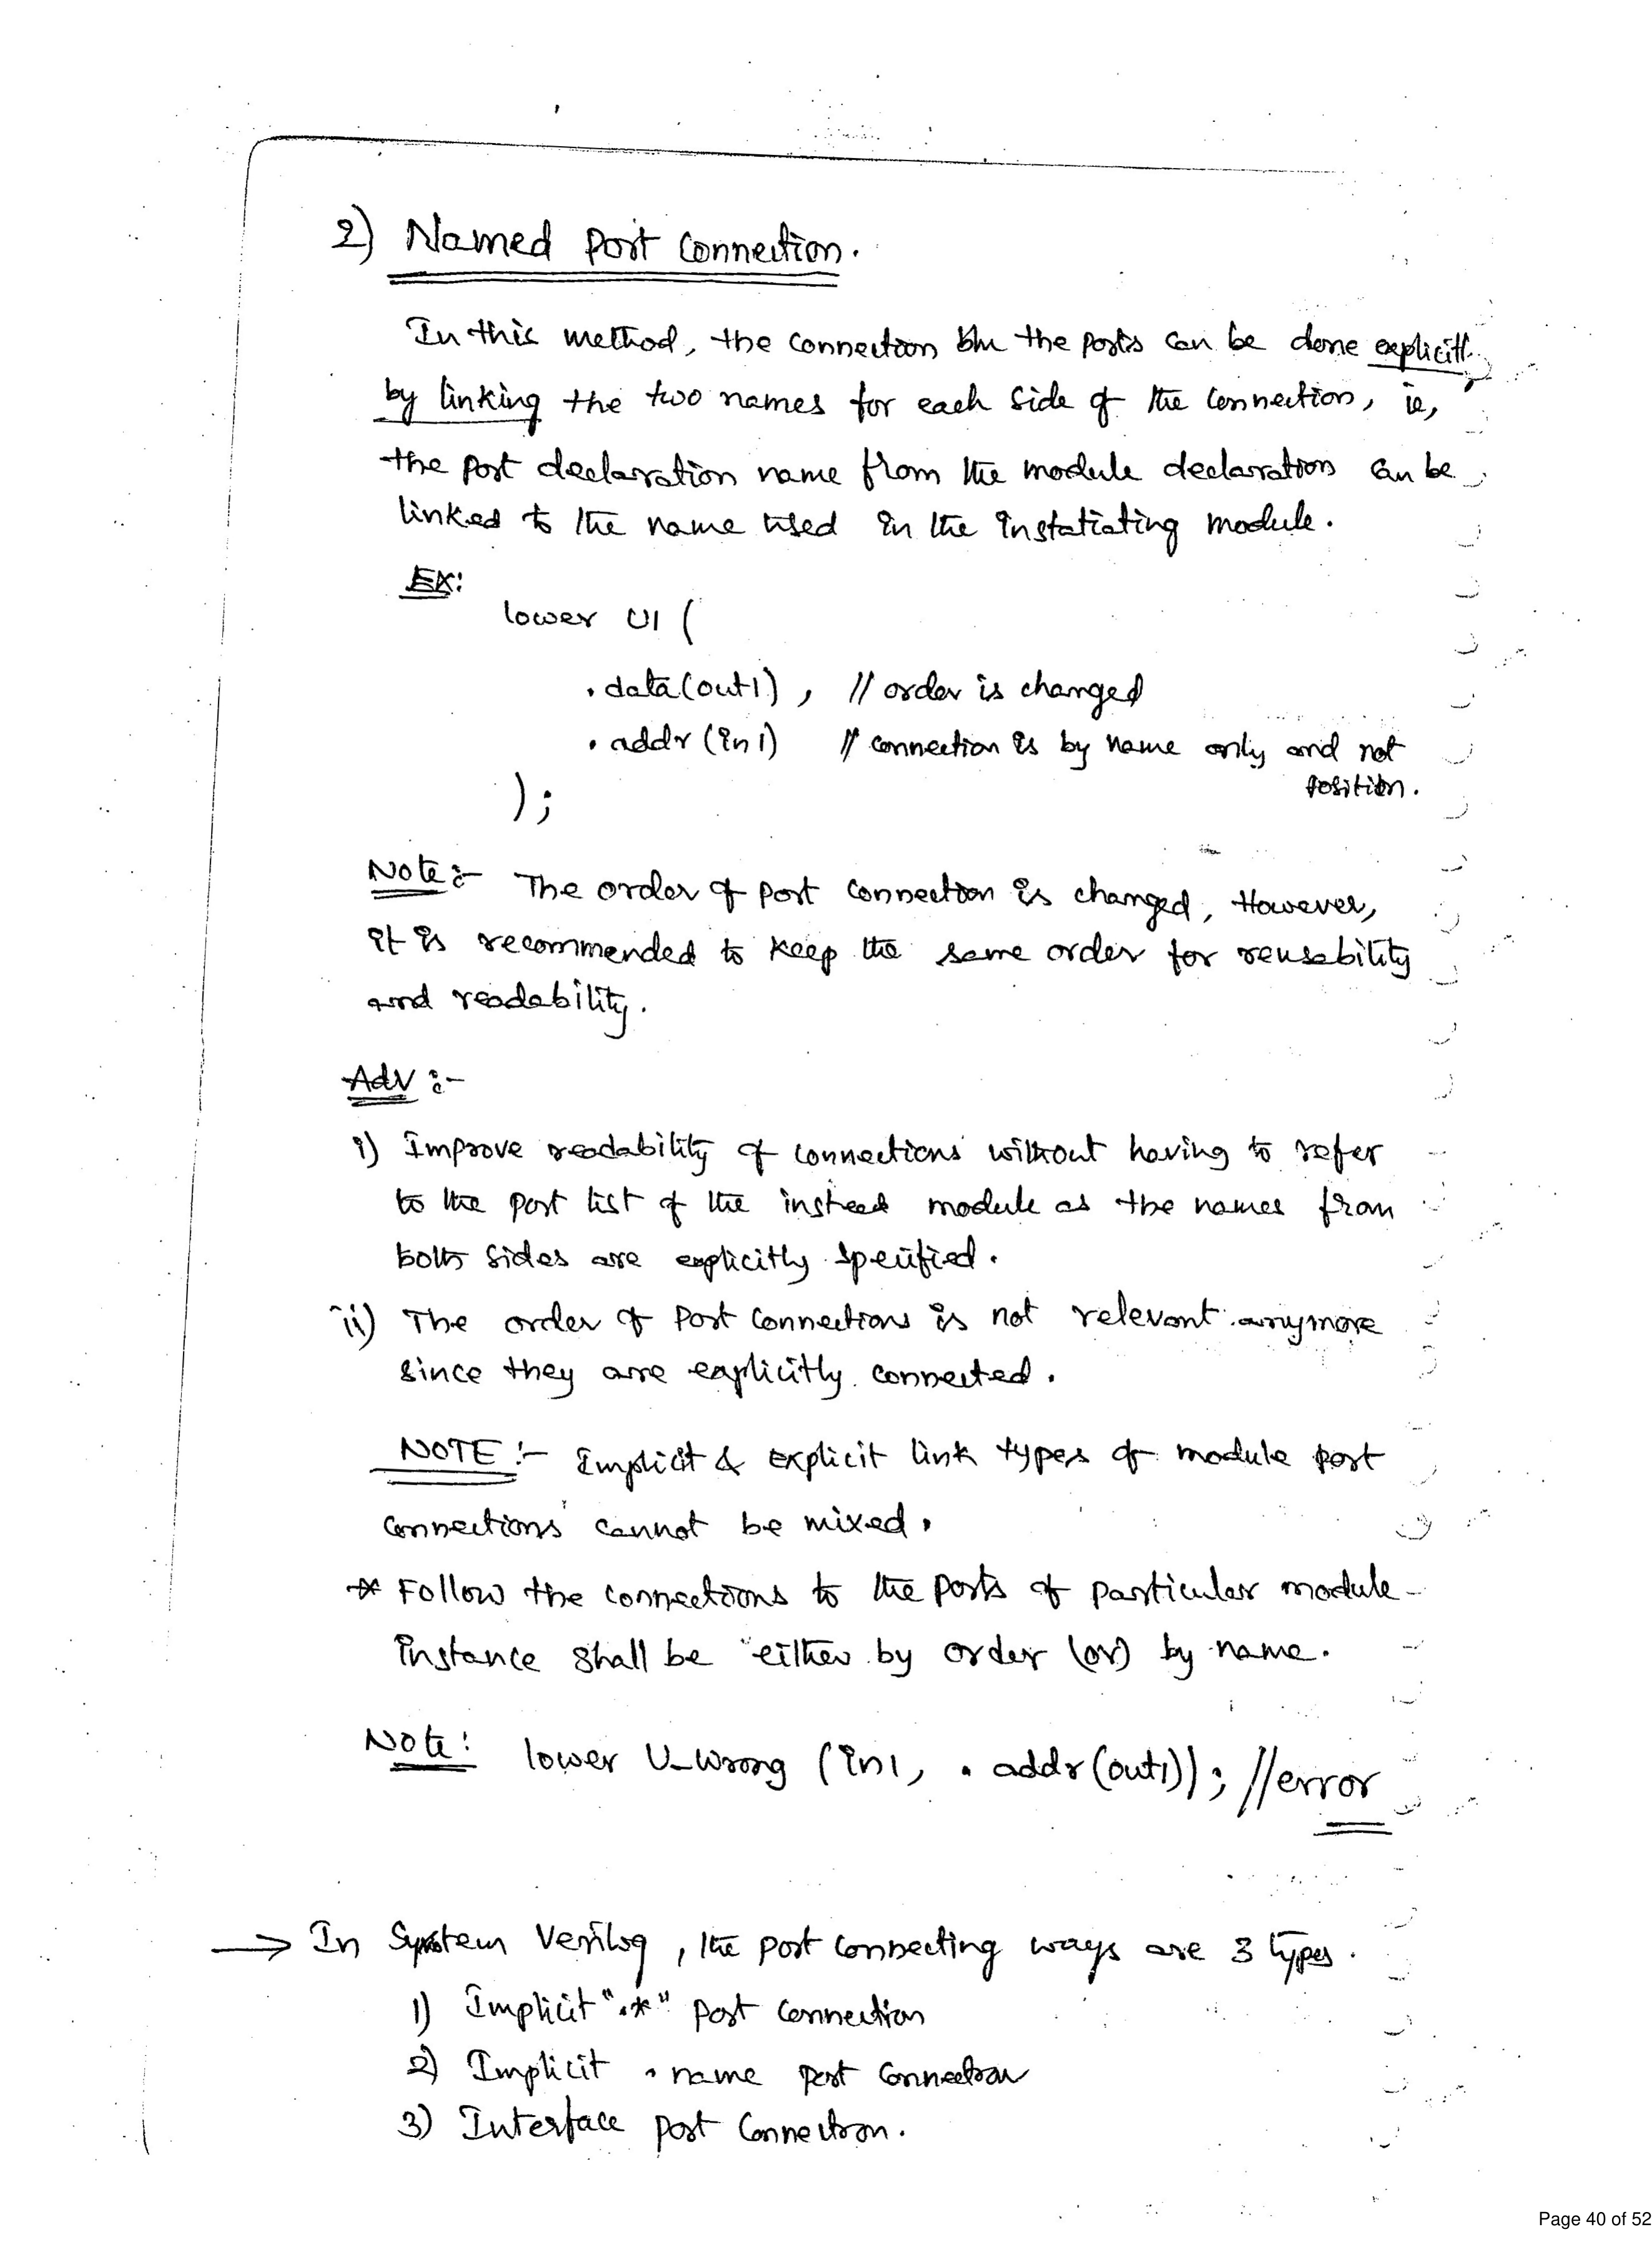 2) Named Port Connection.
In this method, the connection b/w the ports can be done explicitl
by linking the two names for each side of the connection, ie,
the port declaration name from the module declaration can be
linked to the name used in the instatiating module.
EX:
lower U1 (
.data(out1) , // order is changed
.addr (in1) // connection is by name only and not
position.
);
Note:- The order of port connection is changed, However,
it is recommended to keep the same order for reusability
and readability.
Adv :-
i) Improve readability of connections without having to refer
to the port list of the module as the names from
both sides are explicitly specified.
ii) The order of port connections is not relevant anymore
since they are explicitly connected.
NOTE :- Implicit & explicit link types of module port
connections cannot be mixed.
* Follow the connections to the ports of particular module
instance shall be either by order (or) by name.
Note: lower U_wrong (in1, .addr(out1)); //error
→ In System Verilog, the port connecting ways are 3 types.
1) Implicit ".*" port connection
2) Implicit .name port connection
3) Interface port connection.
Page 40 of 52